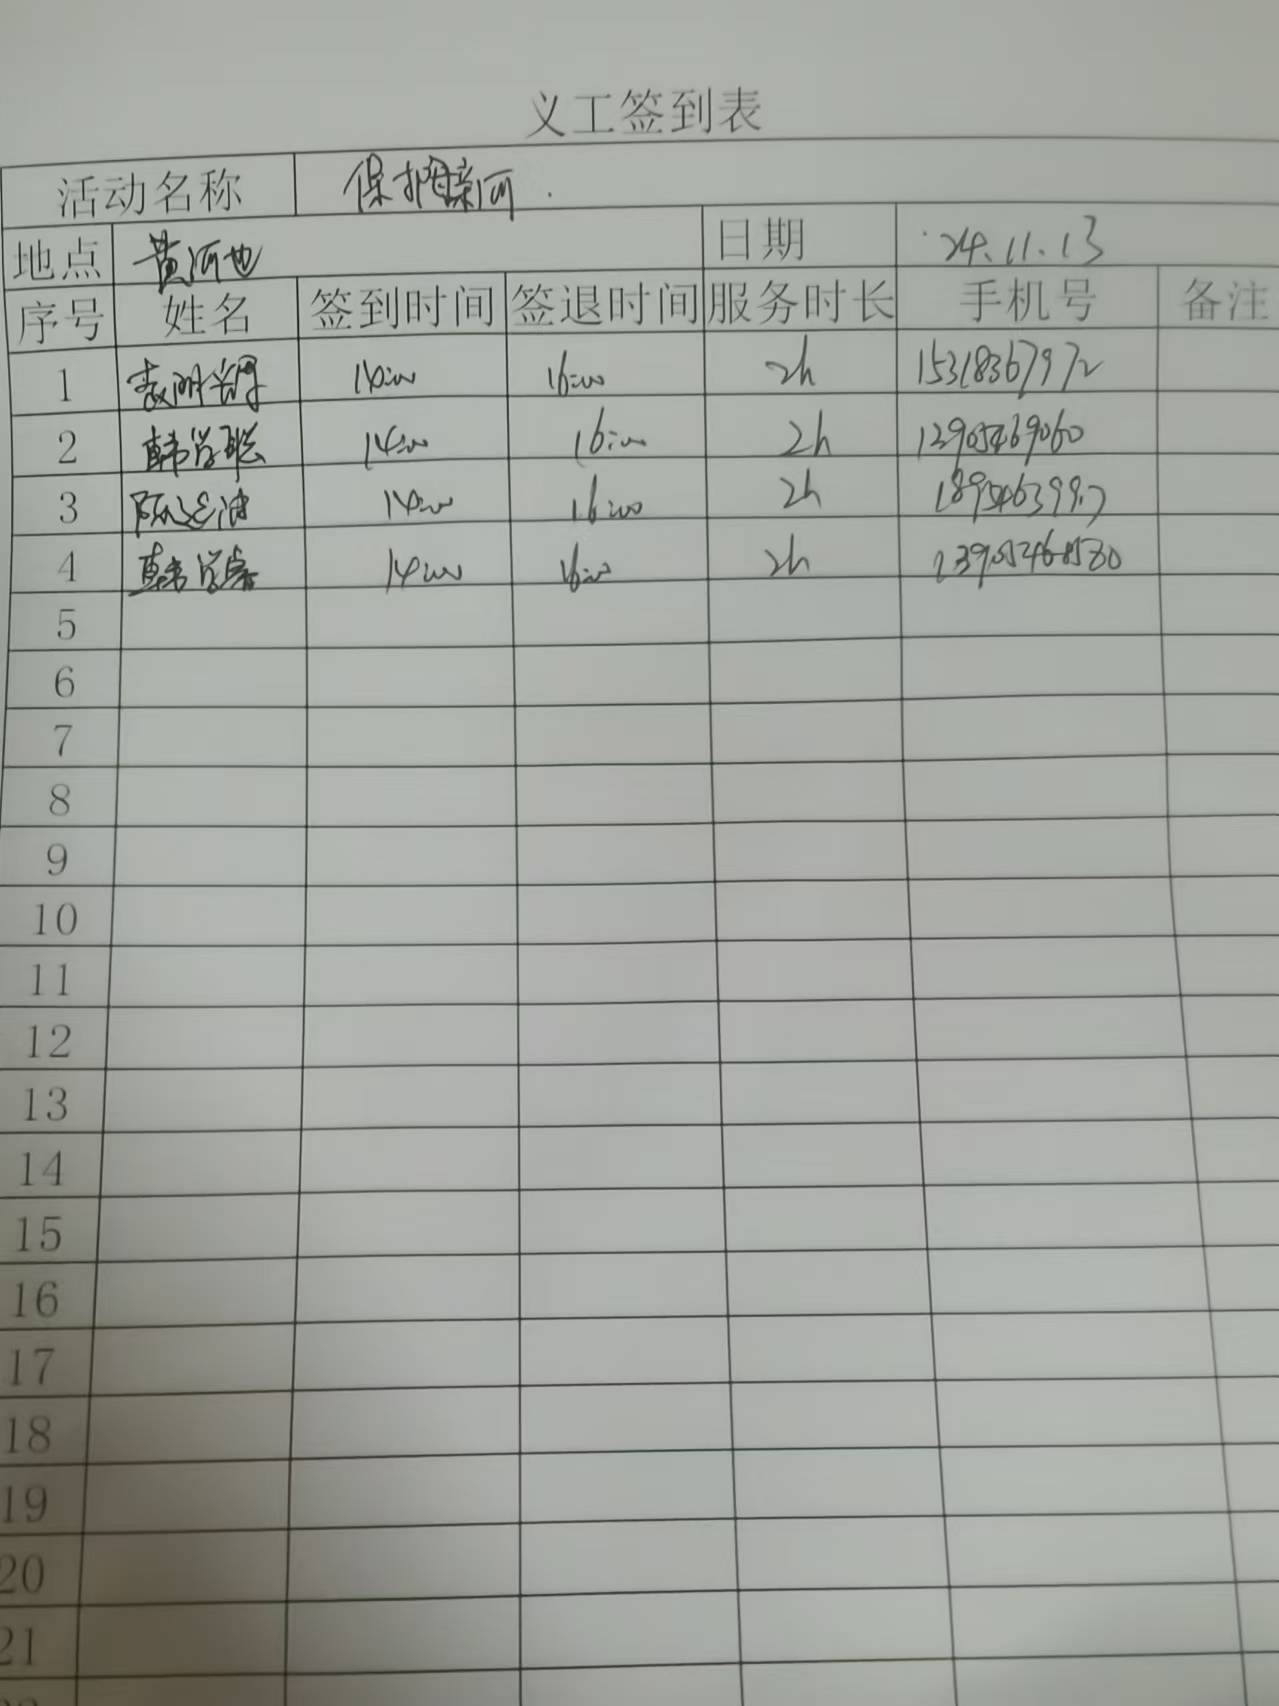 义工签到表
活动名称 保护母亲河
地点 黄河 日期 24.11.13
序号 姓名 签到时间 签退时间 服务时长 手机号 备注
1 14:00 16:00 2h 15318367972
2 韩学聪 14:00 16:00 2h
3 14:00 16:00 2h
4 韩学 14:00 16:00 2h
5
6
7
8
9
10
11
12
13
14
15
16
17
18
19
20
21